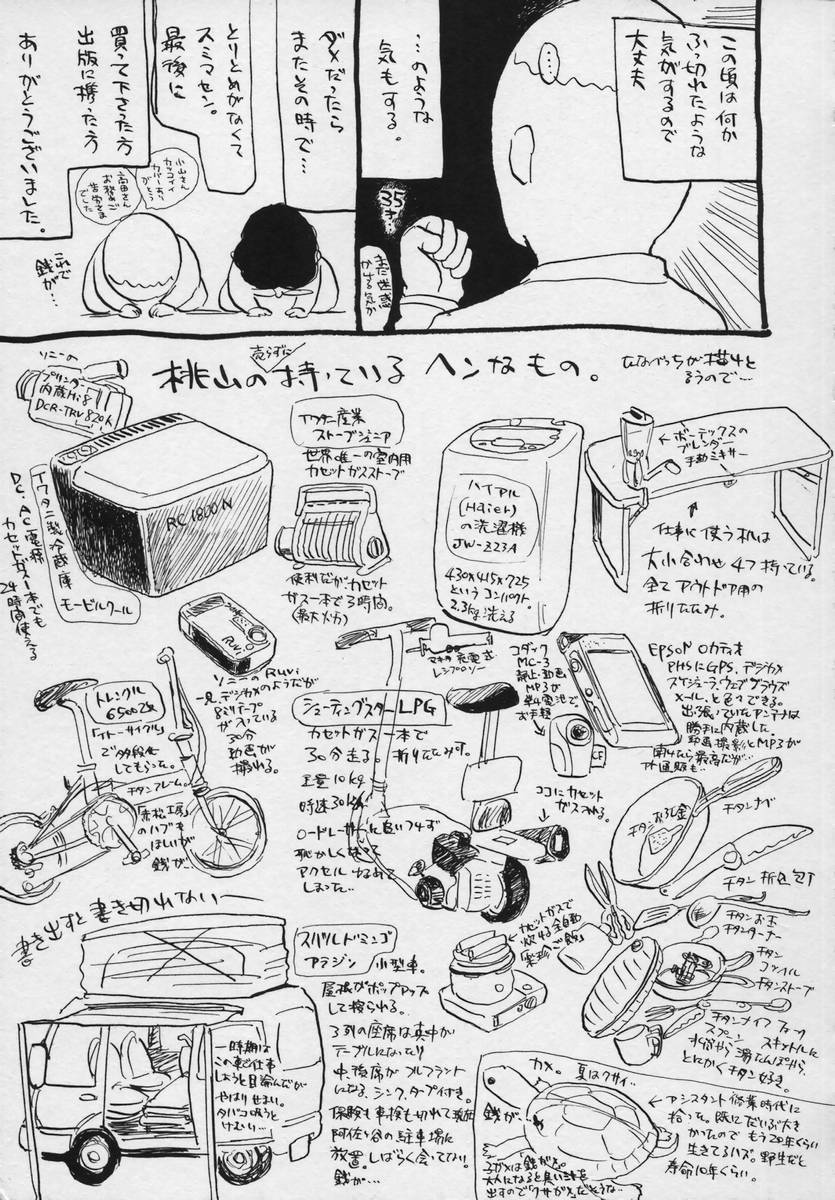 この頃は何か
ふっ切れたような
気がするので
大丈夫
…のような
気もする。
35才…
まだ迷惑
かける気か
ダメだったら
またその時で…
とりとめがなくて
スミマセン。
最後に
買って下さった方
出版に携った方
ありがとうございました。
小山さん
カッコイイ
カバーあり
がとう
高田さん
お務めご
苦労さま
でした
これで
銭が…
桃山の売らずに持っているヘンなもの。
ソニーの
プリンター
内蔵Hi8
DCR-TRV820K
RC1800N
イワタニ製冷蔵庫
モービルクール
DC、AC電源
カセットガス一本でも
24時間使える
イワタニ産業
ストーブジュニア
世界唯一の室内用
カセットガスストーブ
便利だがカセット
ガス一本で3時間。
(最大火力)
ハイアル
(Haier)
の洗濯機
JW-Z23A
430×415×725
というコンパクト。
2.3kg洗える
←ボーテックスの
ブレンダー
手動ミキサー
仕事に使う机は
大小合わせ4つ持っている。
全てアウトドア用の
折りたたみ。
ソニーのRuvi
一見、デジカメのようだが
8ミリテープ
が入っている
30分
動画が
撮れる。
トレンクル
6500改
「イトーサイクル」
で多段化
してもらった。
チタンフレーム。
「赤松工房」
のハブも
ほしいが
銭が…
シューティングスターLPG
カセットガス一本で
30分走る。折りたたみ可。
重量10kg
時速30km
ロードレーサーに追いつけず
恥かしくなって
アクセルゆるめて
しまった…
マキタ充電式
レシプロソー
ココにカセット
ガス入れる。
コダック
MC-3
静止・動画
MP3が
単4電池で
お手軽
CF
EPSON ロカティオ
PHSにGPS、デジカメ
スケジューラ、ウェブブラウズ
メールと色々できる。
出っ張っていたアンテナは
勝手に内蔵した。
動画撮影とMP3が
チタンおろし金
チタンナベ
チタン折込包丁
チタンお玉
チタンターナー
チタン
コッヘル
チタンストーブ
チタンナイフ フォーク
スプーン スキットルに
水筒やら湯たんぽやら、
とにかくチタン好き。
書き出すと書き切れないー
スバルドミンゴ
アラジン 小型車。
屋根がポップアップ
して捨られる。
3列の座席は真中が
テーブルになったり
中・後席がフルフラット
になる、シンク、タープ付き。
保険も車検も切れて現在
阿佐ヶ谷の駐車場に
放置。しばらく会ってない。
銭が…
一時期は
この車で仕事
しようと目論んだが
やはりせまい。
タバコ吸うと
けむい…
カセットガスで
炊ける全自動
カメ。
夏はクサイ
銭が…
←アシスタント修業時代に
拾った。既にだいぶ大き
かったのでもう20年くらい
生きてるハズ。野生だと
寿命10年くらい。